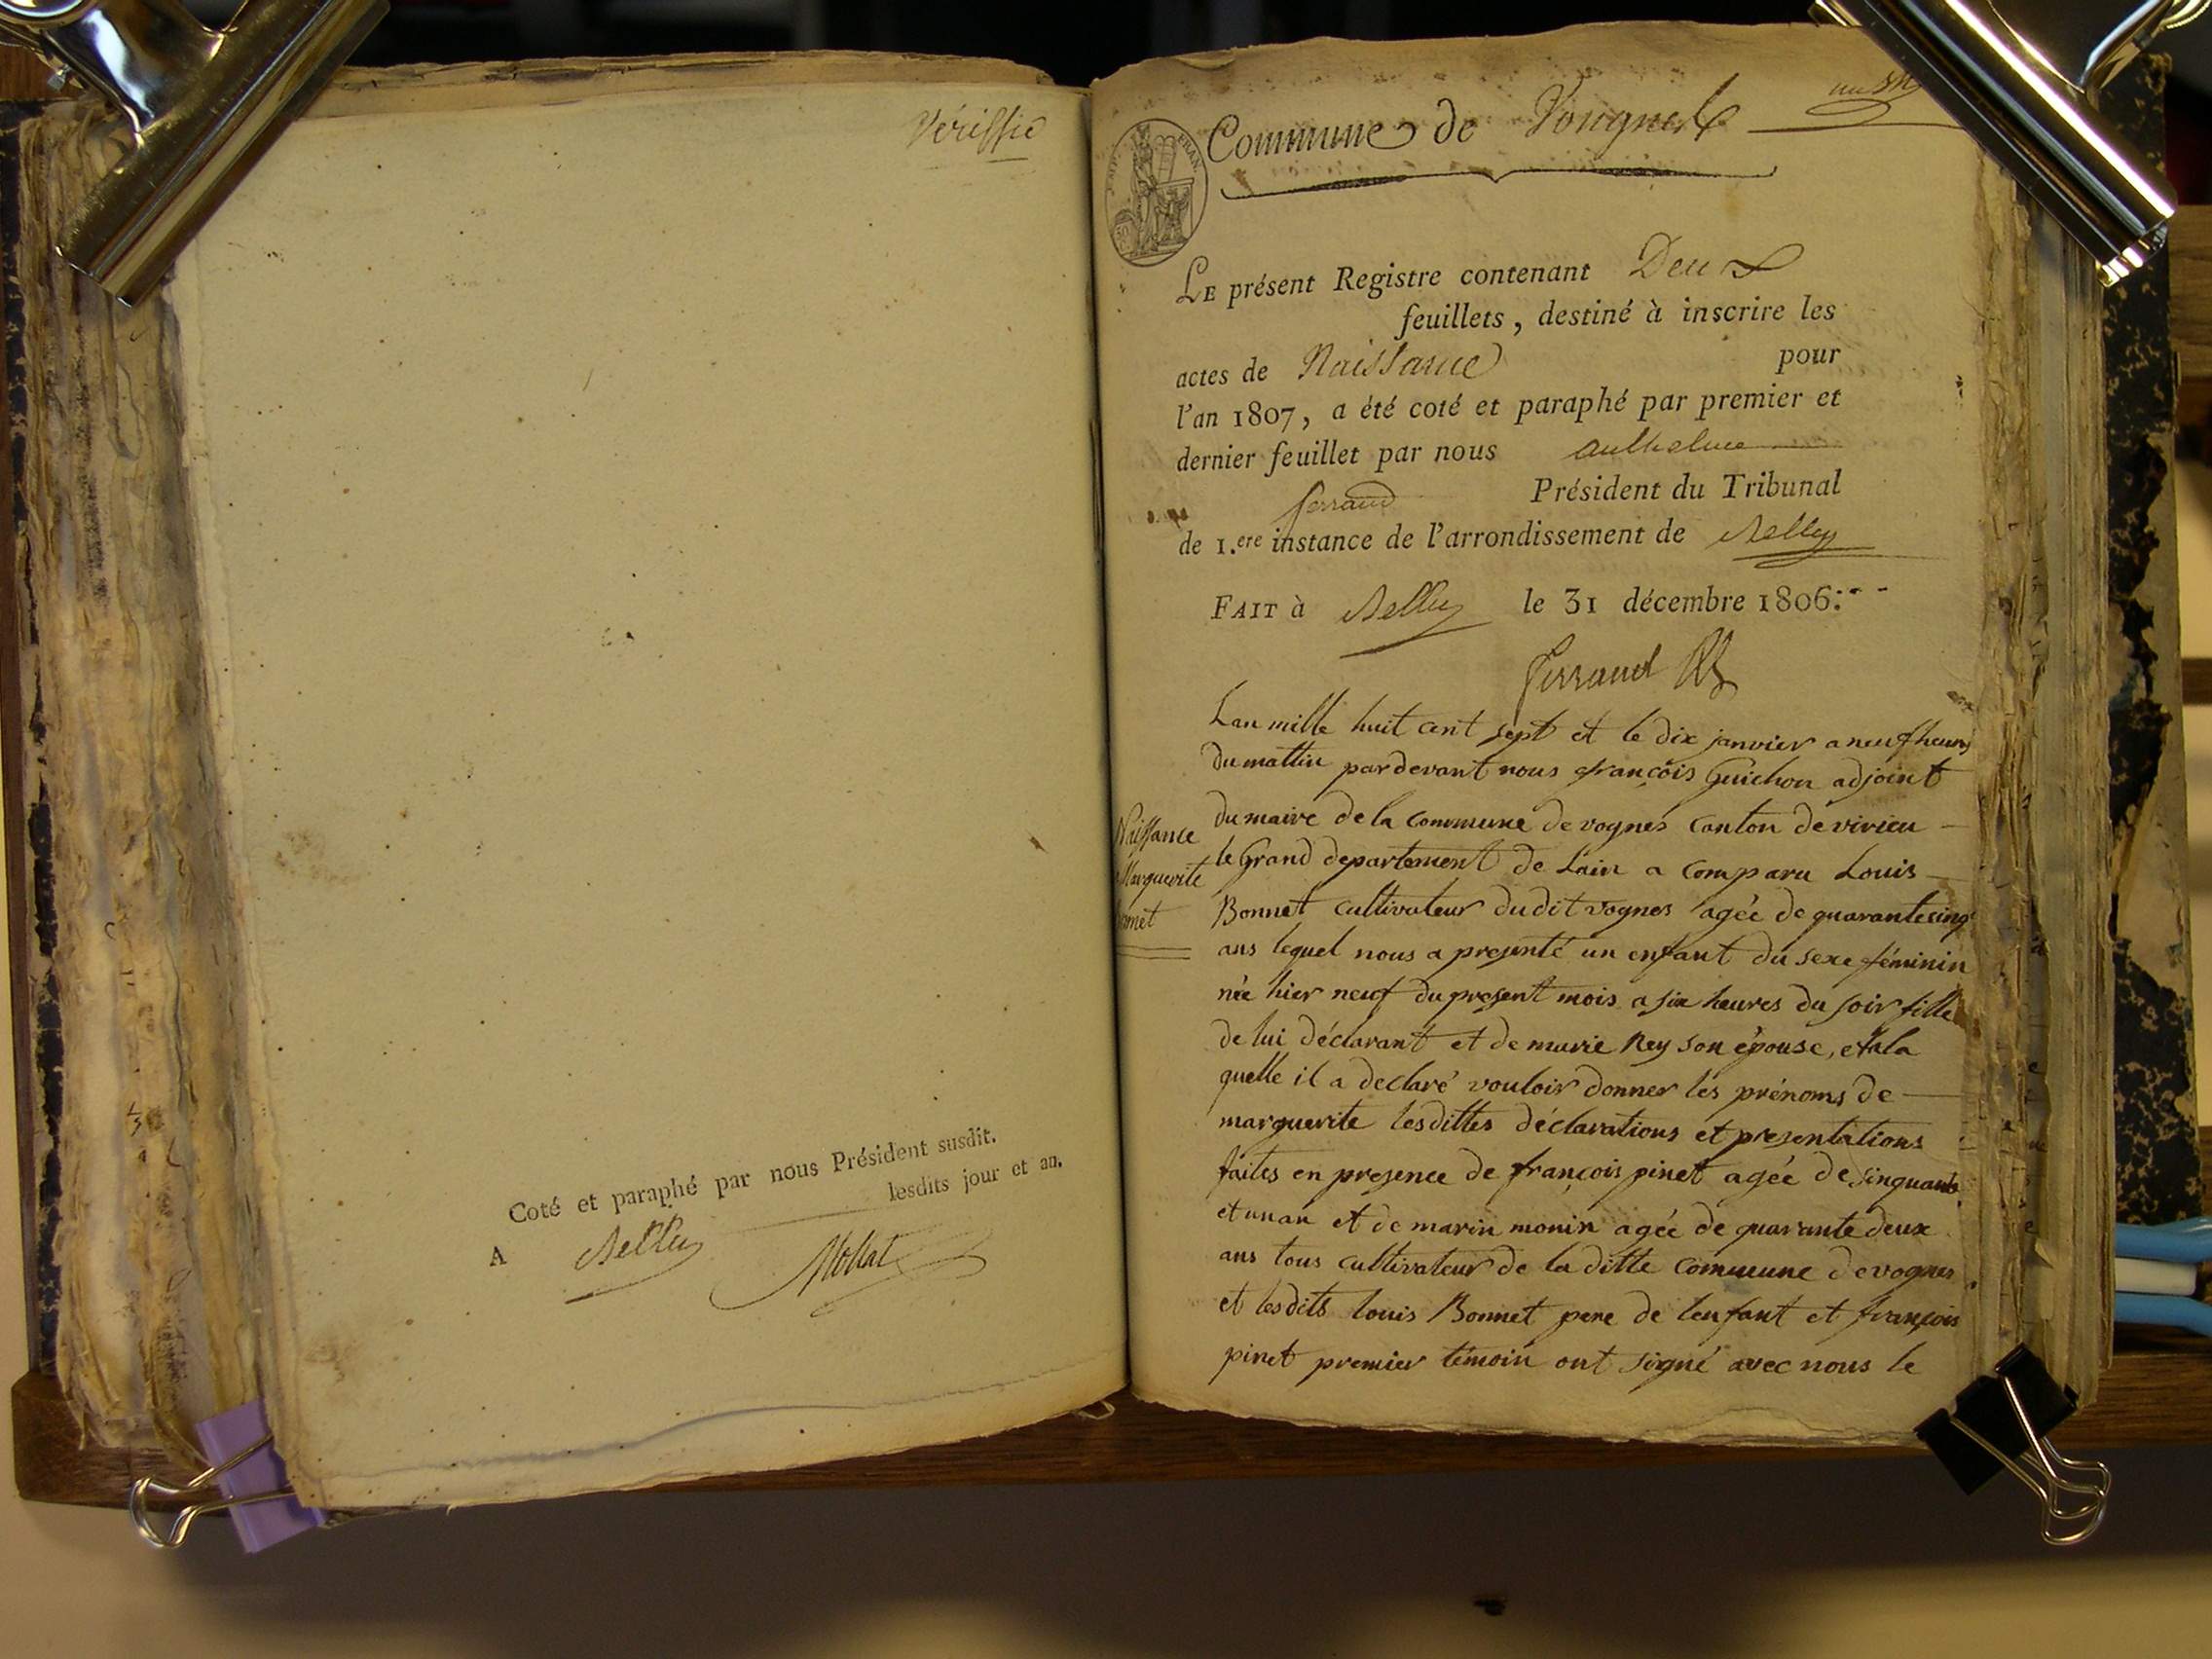 Vériffié
Coté et paraphé par nous Président susdit.
lesdits jour et an.
A Belley Mollat
Commune de Vongnes
EMP. FRAN.
Le présent Registre contenant Deux
feuillets, destiné à inscrire les
actes de Naissance pour
l'an 1807, a été coté et paraphé par premier et
dernier feuillet par nous anthelme
ferrand Président du Tribunal
de 1.ere instance de l'arrondissement de Belley
Fait à Belley le 31 décembre 1806.
ferrand
Naissance
Marguerite
Lan mille huit cent sept et le dix janvier a neuf heures
du mattin pardevant nous françois Guichon adjoint
du maire de la Commune de vognes Canton de virieu
le Grand departement de Lain a Comparu Louis
Bonnet cultivateur dudit vognes agée de quarante sinq
ans lequel nous a presenté un enfant du sexe féminin
née hier neuf du present mois a six heures du soir fille
de lui déclarant et de marie Rey son épouse, et a la
quelle il a declaré vouloir donner les prénoms de
marguerite lesdittes déclarations et presentations
faites en presence de françois pinet agée de sinquante
et un an et de marin monin agée de quarante deux
ans tous cultivateur de la ditte Commune de vognes
et lesdits louis Bonnet pere de lenfant et françois
pinet premier témoin ont signé avec nous le